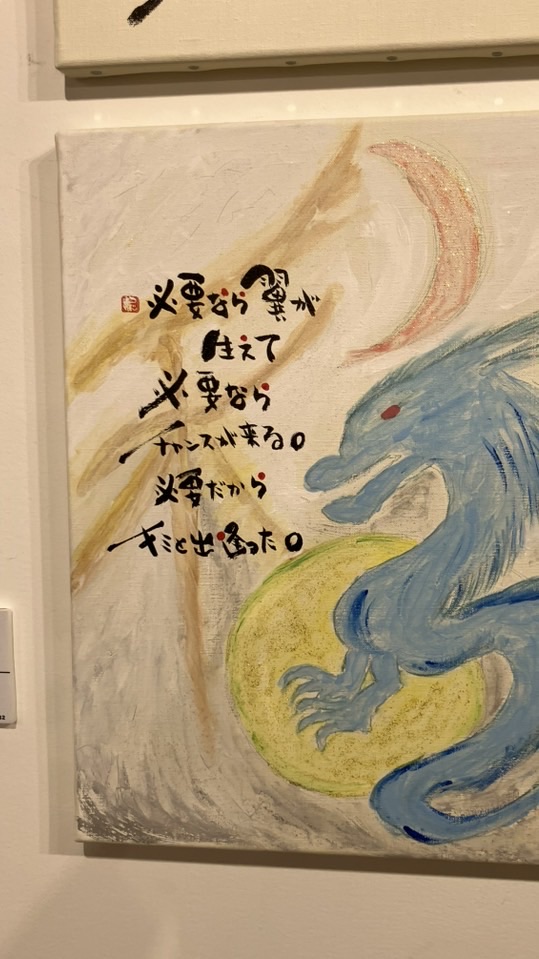 必要なら翼が
生えて
必要なら
チャンスが来る。
必要だから
キミと出逢った。